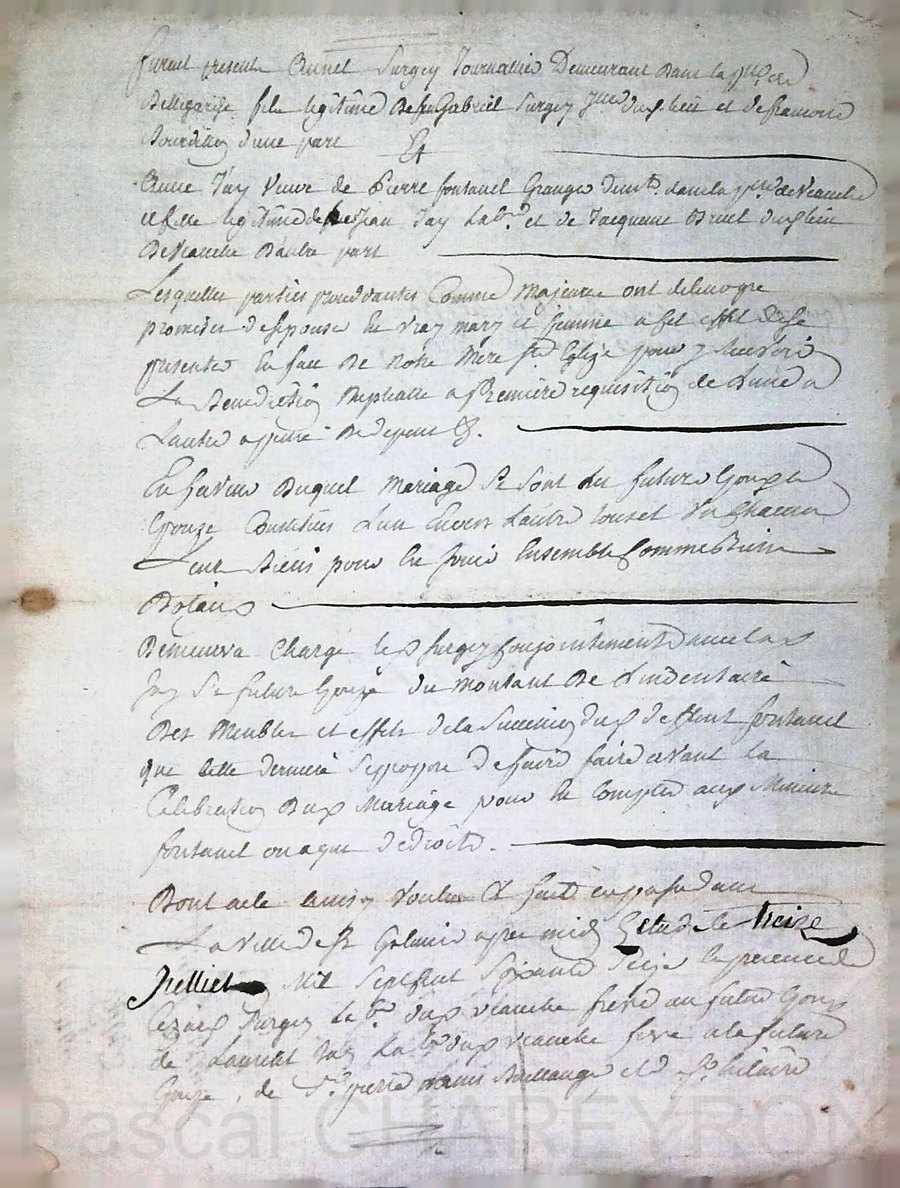 furent presents Annet Surgey Journallier Demeurant dans la
Bellegarde fils legitime de Gabriel Surgey dud lieu et de
d'une part Et
Anne Jay Veuve de Pierre fontanel Granger dem't dans la de Veauche
et fille legitime de Jean Jay Lab'r et de Jacqueme Bruel dud lieu
De Veauche D'autre part
Lesquelles parties comme majeures ont de leur gré
promis d'espouser en vray mary et femme a cet effet de se
presenter En face De Notre Mere s'te Eglize pour y Recevoir
La Benediction a Premiere requisition de L'une a
L'autre a peine De depens &.
En faveur Duquel mariage Se sont les futurs Epoux
Epouze Constitués L'un Envers Lautre tous et Un Chacun
Leur Biens pour En Jouir Ensemble Comme Biens
Dotaux
Demeurera Chargé led Surgey Conjointement avec lad
Jay Sa future Epouze du Montant De L'inventaire
Des Meubles et effets de la Succession dud deffunt fontanel
que cette derniere Se propose de faire avant la
Celebration Dud Mariage pour En Compter aux Mineurs
fontanel ou a qui de droit.
Dont acte Voulu Et fait et passé dans
La Ville de S't Galmier apres midi Etude le treize
Juillet Mil Sept Cent Soixante Seize En presence de
Surgey Lab'r dud Veauche frere au futur Epoux
de Laurent Jay Lab'r dud Veauche frere a la future
Epouze, de S'r pierre et S'r hilaire
Pascal CHAREYRON